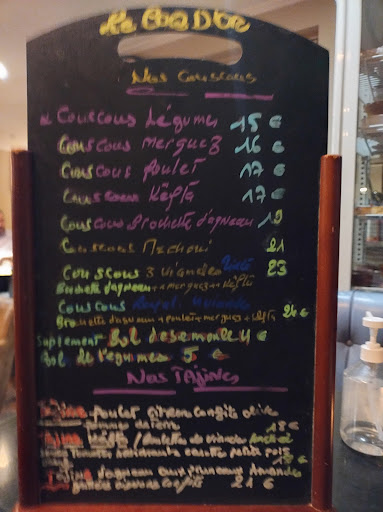 Le COQ D'OR
Nos Couscous
Couscous Légumes 15 €
Couscous merguez 16 €
Couscous Poulet 17 €
Couscous Kéfta 17 €
Couscous Brochette d'agneau 19
Couscous Mechoui 21
Couscous 3 viandes 23
Brochette d'agneau + merguez + Kéfta
Couscous Royal
Brochette d'agneau + poulet + merguez + Kéfta 24 €
Suplement Bol de semoule 4 €
Bol de légumes 5 €
Nos TAjines
Tajine poulet citron confit olive
18 €
Tajine Kéfta
petit pois
Tajine d'agneau aux pruneaux Amandes
21 €